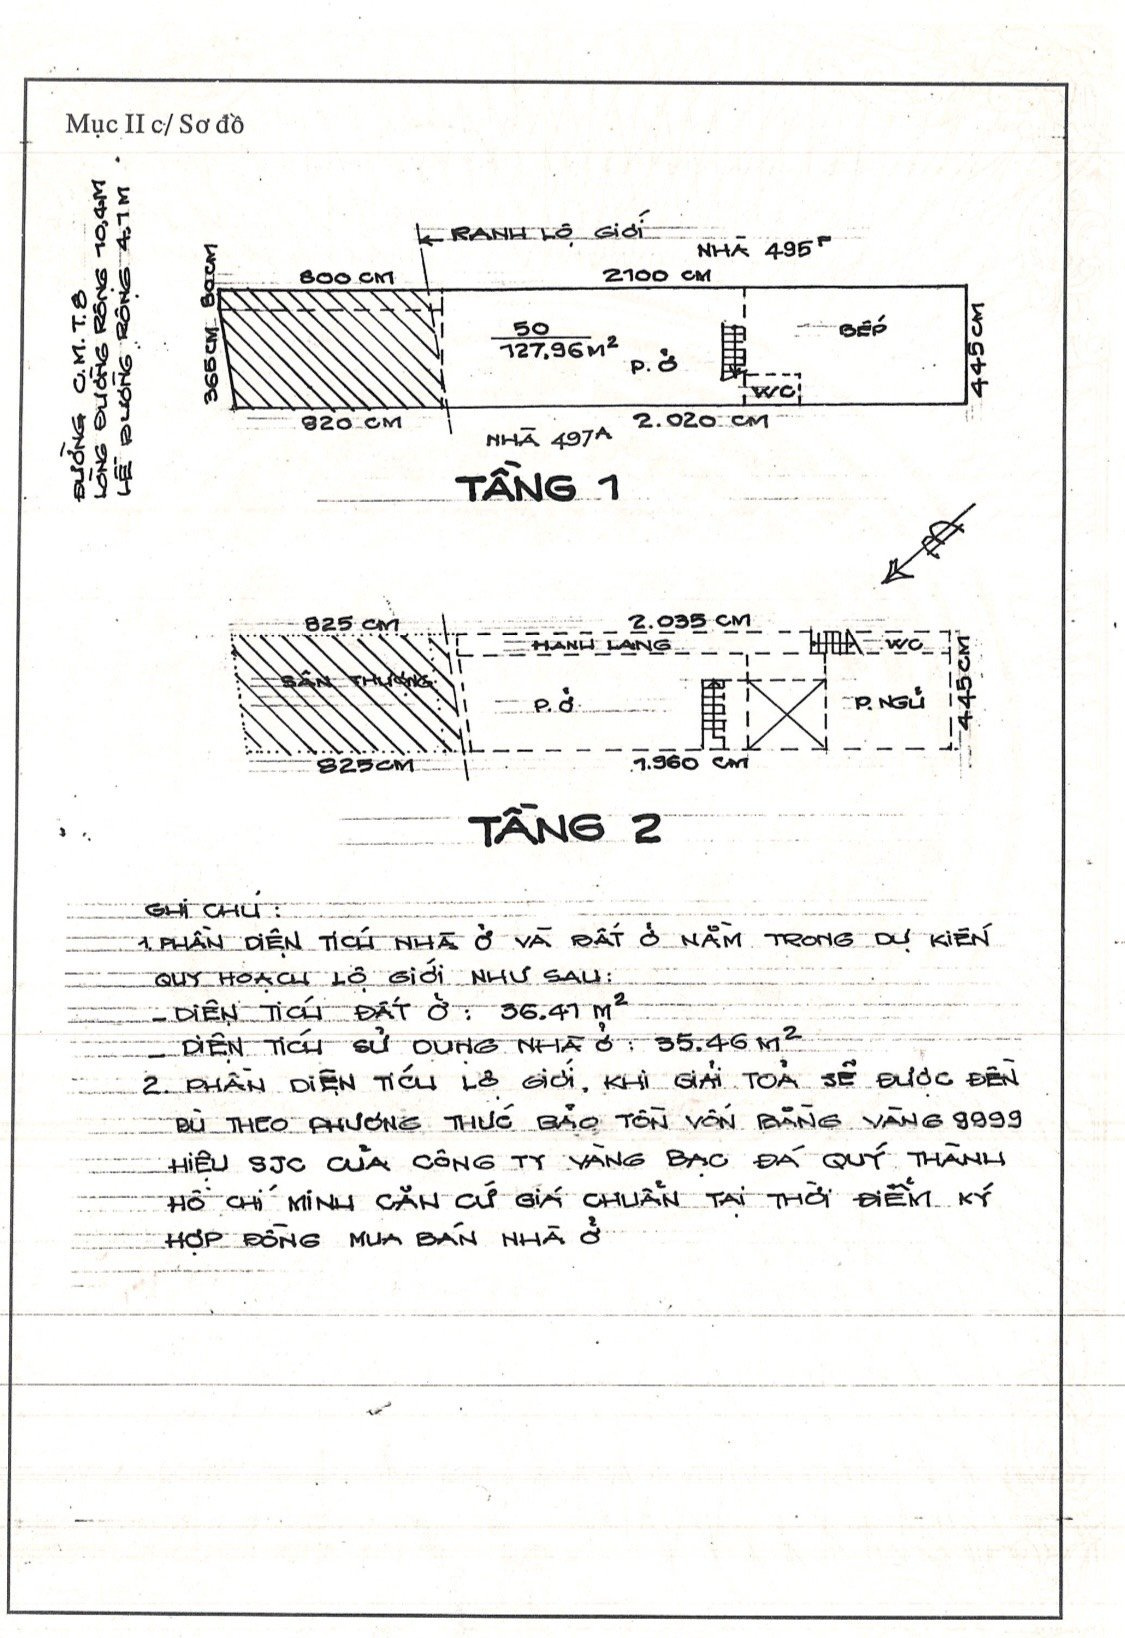 Mục II c/ Sơ đồ
ĐƯỜNG C.M.T.8
LÒNG ĐƯỜNG RỘNG 10,4M
LỀ ĐƯỜNG RỘNG 4.1M
RANH LỘ GIỚI
NHÀ 495F
80CM
800 CM
2100 CM
365CM
50
127.96M²
P. Ở
BẾP
WC
445CM
820 CM
2.020 CM
NHÀ 497A
TẦNG 1
B
825 CM
2.035 CM
HÀNH LANG
WC
SÂN THƯỢNG
P.Ở
P. NGỦ
445CM
825CM
1.960 CM
TẦNG 2
GHI CHÚ :
1. PHẦN DIỆN TÍCH NHÀ Ở VÀ ĐẤT Ở NẰM TRONG DỰ KIẾN
QUY HOẠCH LỘ GIỚI NHƯ SAU:
- DIỆN TÍCH ĐẤT Ở : 36.41 M²
- DIỆN TÍCH SỬ DỤNG NHÀ Ở : 35.46 M²
2. PHẦN DIỆN TÍCH LỘ GIỚI, KHI GIẢI TOẢ SẼ ĐƯỢC ĐỀN
BÙ THEO PHƯƠNG THỨC BẢO TỒN VỐN BẰNG VÀNG 9999
HIỆU SJC CỦA CÔNG TY VÀNG BẠC ĐÁ QUÝ THÀNH
HỒ CHÍ MINH CĂN CỨ GIÁ CHUẨN TẠI THỜI ĐIỂM KÝ
HỢP ĐỒNG MUA BÁN NHÀ Ở